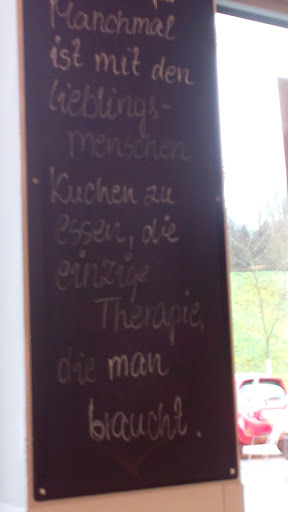 Manchmal
ist mit den
lieblings-
menschen
Kuchen zu
essen, die
einzige
Therapie,
die man
braucht.